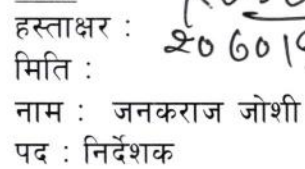 हस्ताक्षर :
मिति :
नाम : जनकराज जोशी
पद : निर्देशक